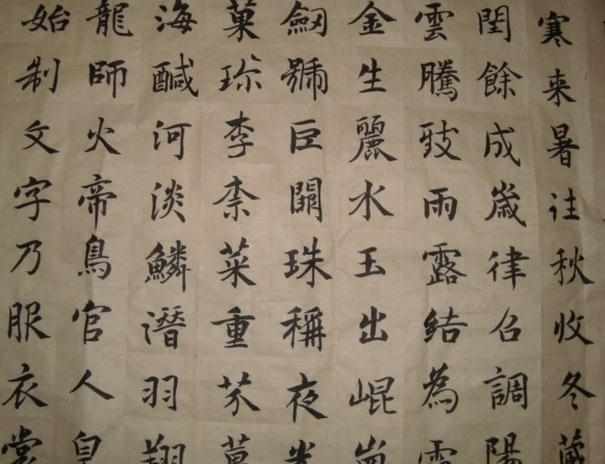 寒来暑往秋收冬藏
閏餘成歲律召調陽
雲騰致雨露結為霜
金生麗水玉出崐崗
劔號巨闕珠稱夜光
菓珎李柰菜重芥薑
海醎河淡鱗潛羽翔
龍師火帝鳥官人皇
始制文字乃服衣裳